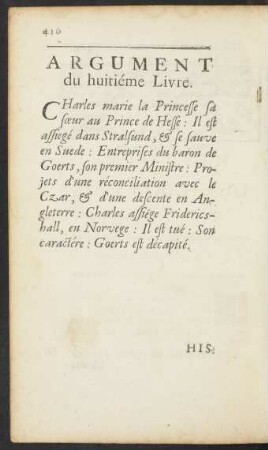 410
ARGUMENT
du huitiéme Livre.
CHarles marie la Princesse sa
sœur au Prince de Hesse : Il est
assiegé dans Stralsund, & se sauve
en Suede : Entreprises du baron de
Goerts, son premier Ministre : Pro-
jets d'une réconciliation avec le
Czar, & d'une descente en An-
gleterre : Charles assiége Frideric-
shall, en Norvege : Il est tué : Son
caractére : Goerts est décapité.
HIS-